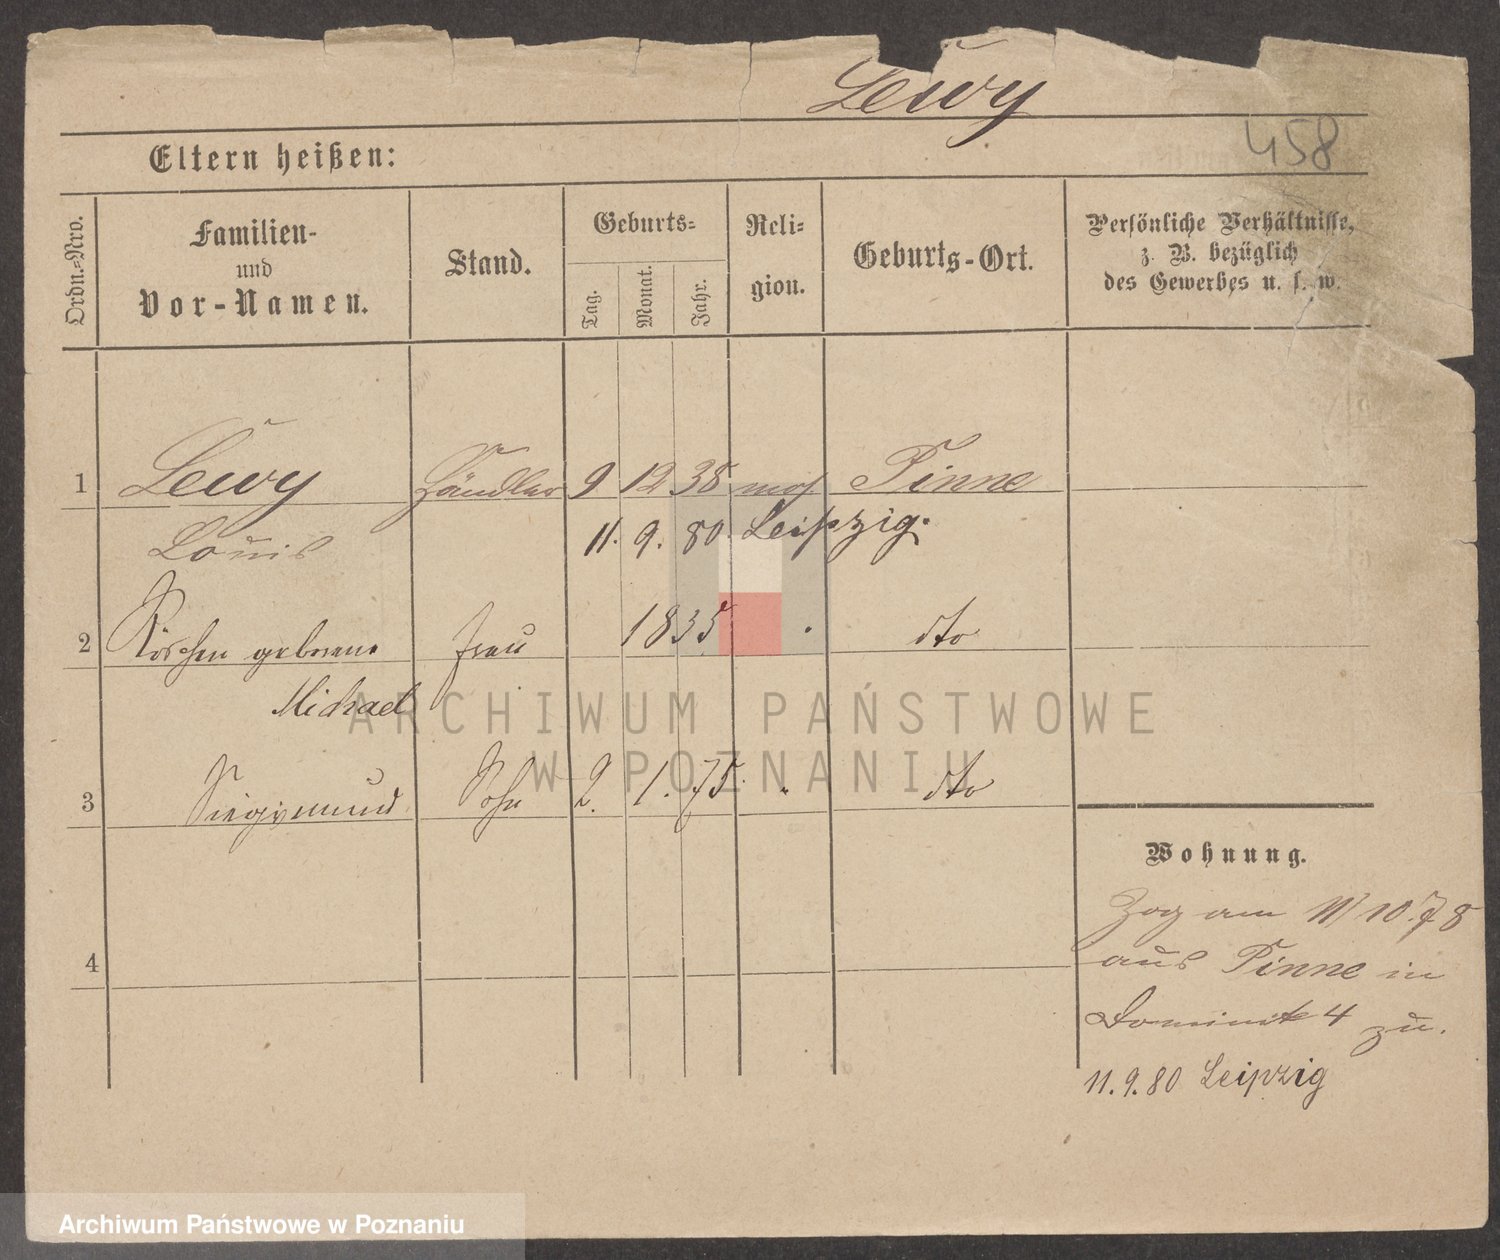 Lewy
458
Eltern heißen:
Ordn.-Nro.
Familien-
und
Vor-Namen.
Stand.
Geburts-
Tag.
Monat.
Jahr.
Reli-
gion.
Geburts-Ort.
Persönliche Verhältnisse,
z. B. bezüglich
des Gewerbes u. s. w.
1 Lewy Händler 9 12 38 mos Pinne
Louis 11. 9. 80. Leipzig.
2 Röschen geborene Frau 1835 dto
Michael
ARCHIWUM PAŃSTWOWE
W POZNANIU
3 Siegismund Sohn 2. 1. 75. " dto
4
Wohnung.
Zog am 11/10.78
aus Pinne in
Dominik 4 zu.
11.9.80 Leipzig
Archiwum Państwowe w Poznaniu